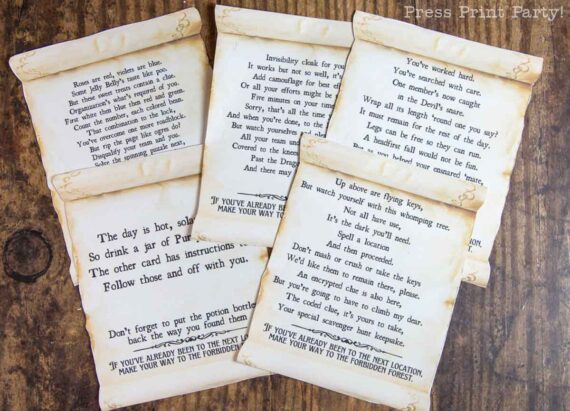 Press Print Party!
Roses are red, violets are blue.
Some Jelly Belly's taste like poo,
But these sweet treats contain a clue.
Organization's what's required of you.
First white then blue then red and green.
Count the number, each colored bean.
That combination to the locks,
You've overcome one more roadblock.
But rip the page like ogres do?
Disqualify your team and you.
Solve the spinning puzzle next,
Invisibility cloak for you
It works but not so well, it's
Add camouflage for best eff
Or all your efforts might be
Five minutes on your time
Sorry, that's all the time
And when you're done, to the
But watch yourselves and
All your team unde
Covered to the knee
Past the Drag
And there may
"IF YOU'VE ALREADY BEEN
MAKE YOUR WAY TO THE
You've worked hard.
You've searched with care.
One member's now caught
in the Devil's snare.
Wrap all its length 'round one you say?
It must remain for the rest of the day.
Legs can be free so they can run.
A headfirst fall would not be fun.
But as you helped your ensnared 'mate,
LOCATION,
FOREST.
The day is hot, sola
So drink a jar of Pu
The other card has instructions
Follow those and off with you.
Don't forget to put the potion bottle
back the way you found them
"IF YOU'VE ALREADY BEEN TO THE NEXT LOCATION,
MAKE YOUR WAY TO THE FORBIDDEN FOREST.
Up above are flying keys,
But watch yourself with this whomping tree.
Not all have use,
It's the dark you'll need.
Spell a location
And then proceeded.
Don't mash or crush or take the keys
We'd like them to remain there, please.
An encrypted clue is also here,
But you're going to have to climb my dear.
The coded clue, it's yours to take,
Your special scavenger hunt keepsake.
"IF YOU'VE ALREADY BEEN TO THE NEXT LOCATION,
MAKE YOUR WAY TO THE FORBIDDEN FOREST.